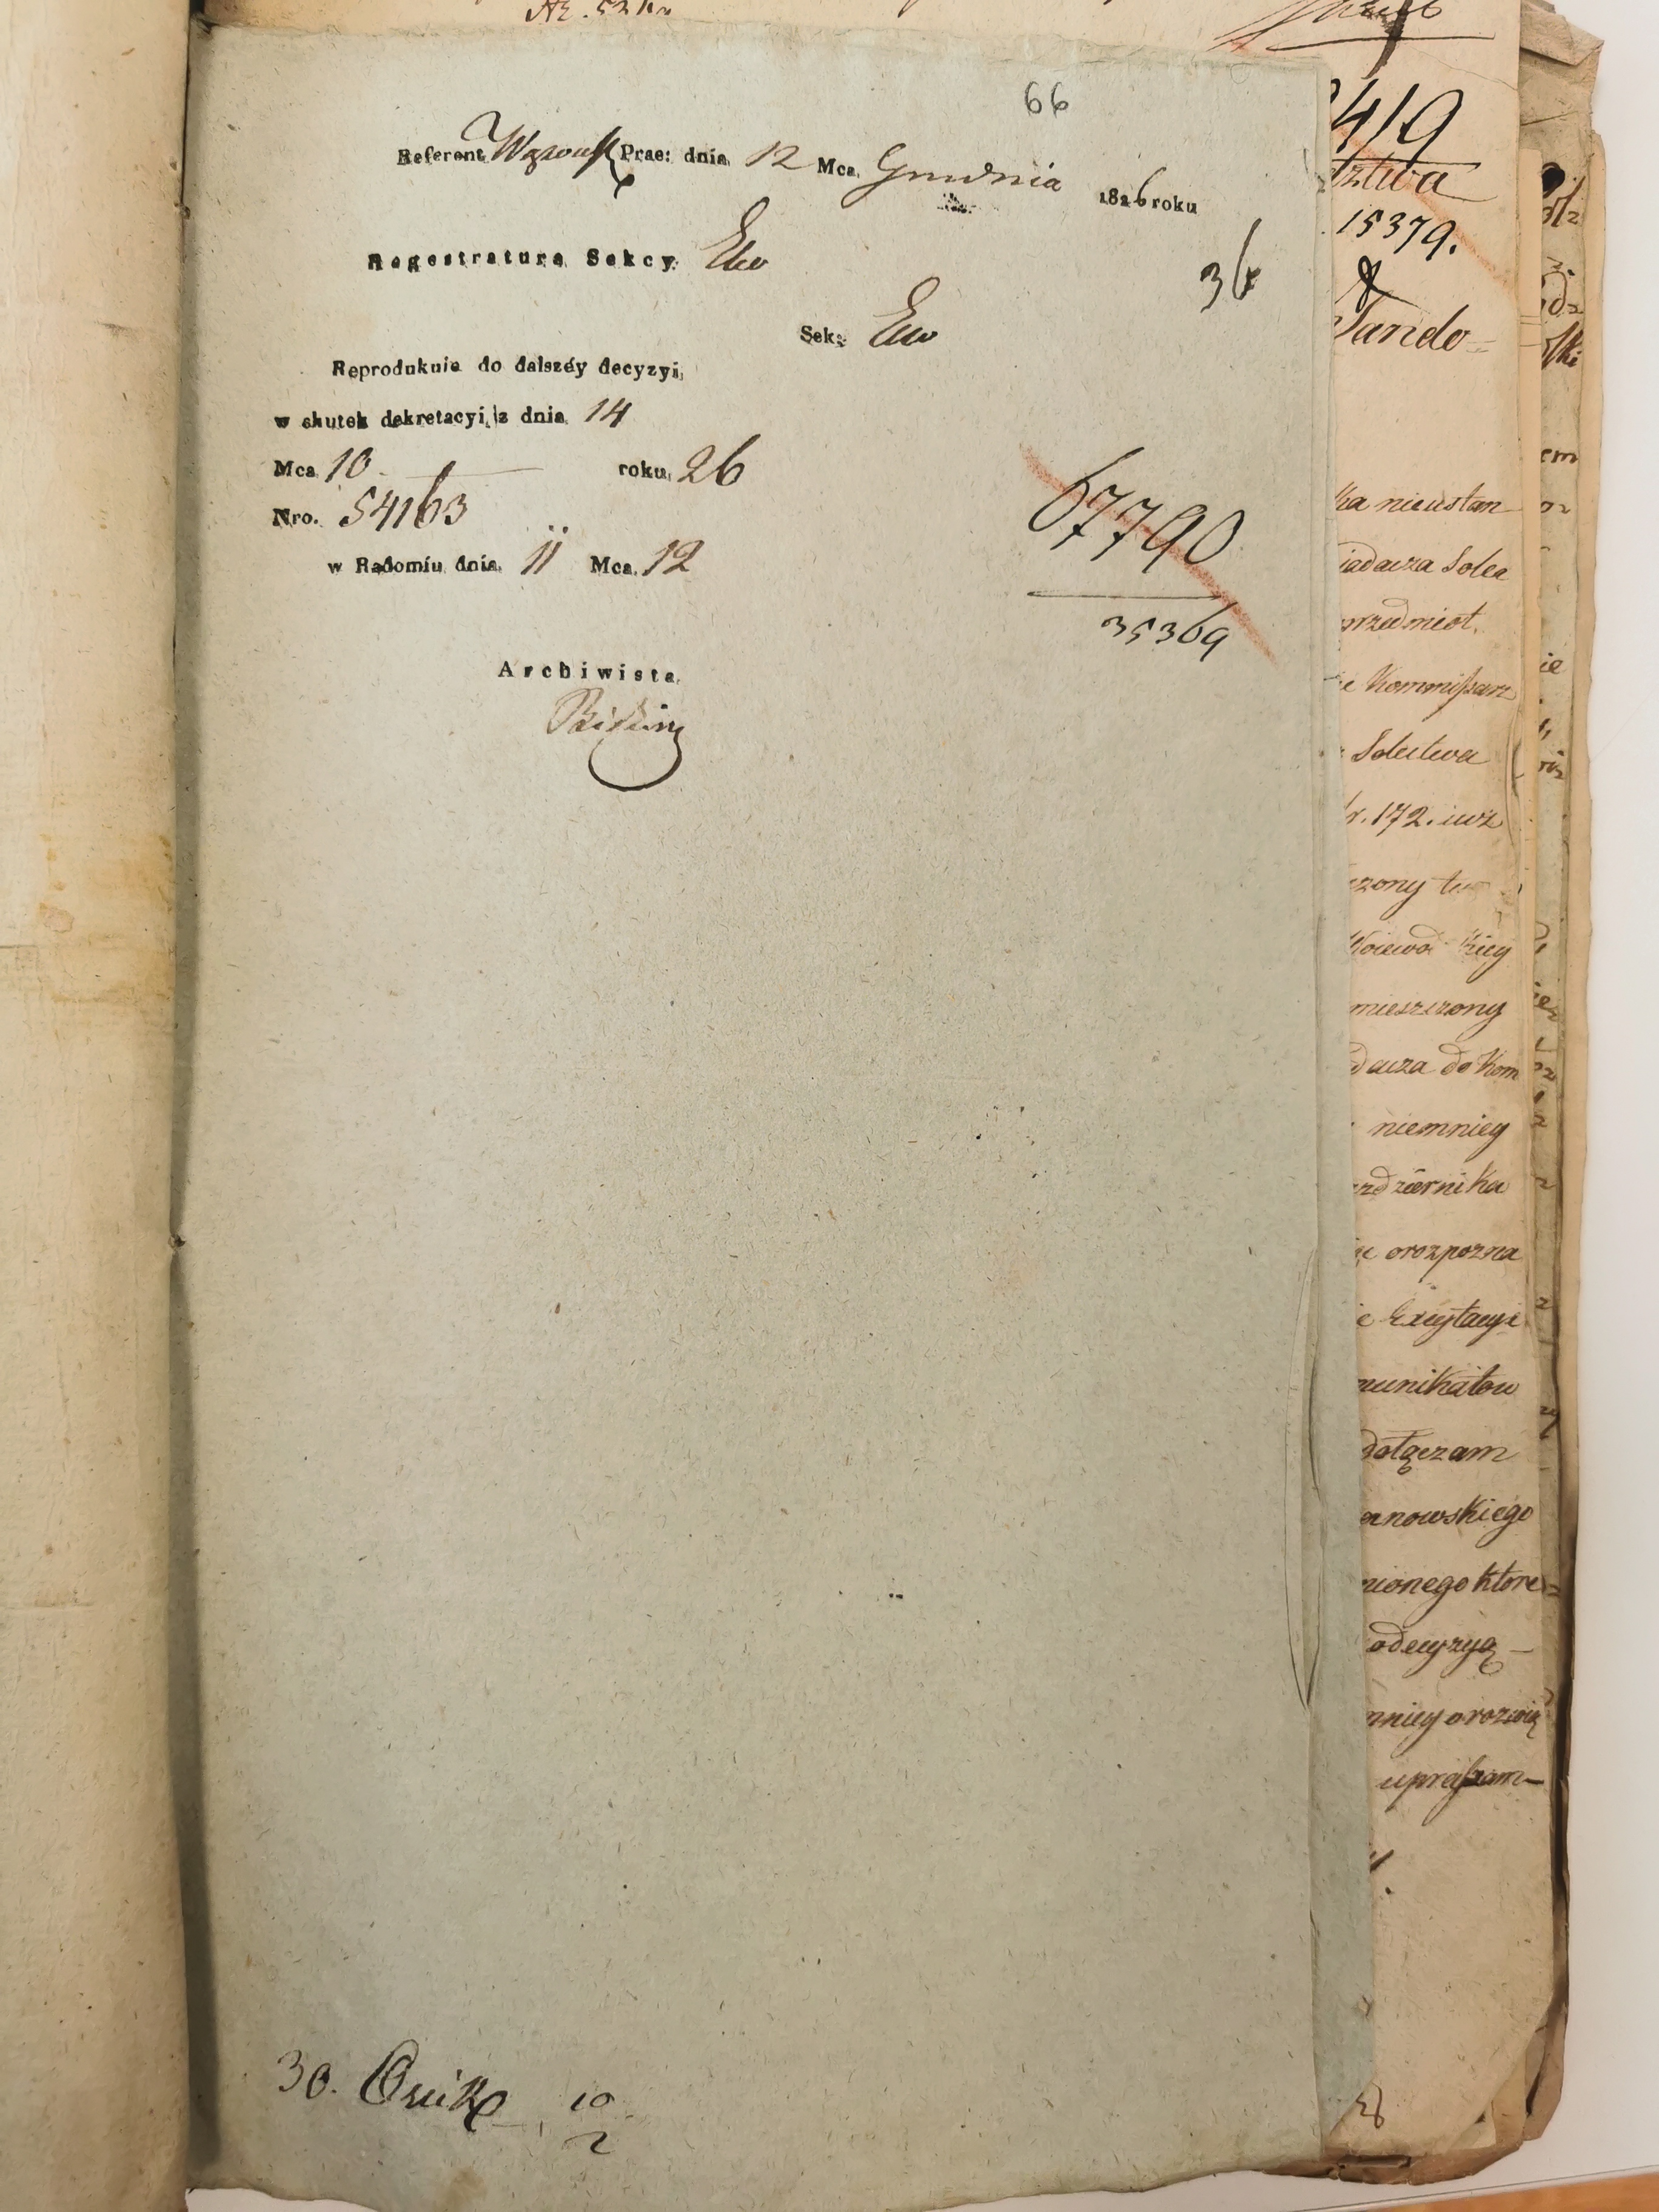 66
Referent Prae: dnia 12 Mca Grudnia 1826 roku
Regestratura Sekcy: Ew
36
Sek: Ew
Reprodukuie do dalszéy decyzyi,
w skutek dekretacyi z dnia 14
Mca 10 roku 26
Nro. 54163
w Radomiu dnia 11 Mca 12
67790
35369
Archiwista
30. 10
2
419
dztwa
15379.
Sando=
ka nieustan
iadacza Solca
przedmiot.
e Kommissarz
Solectwa
172. iuż
czony
mieszczony
dacza do Kom
niemniey
ździernika
orozpozna
munikatow
dołączam
anowskiego
nionego które=
odecyzyą –
mniey orozwią
upraszam –